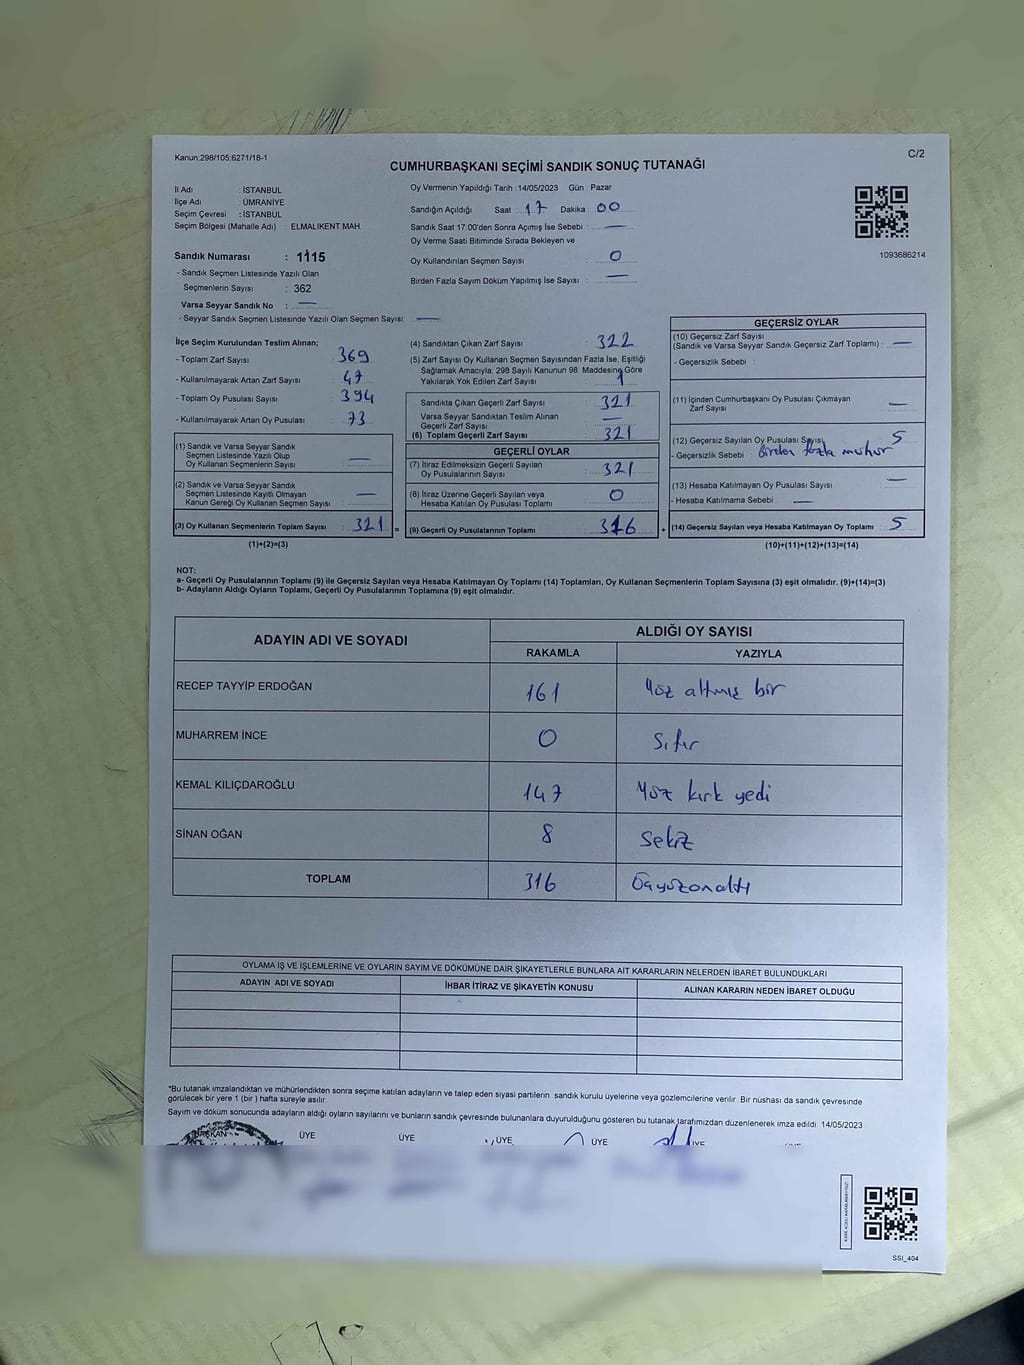 Kanun:298/105;6271/18-1
C/2
CUMHURBAŞKANI SEÇİMİ SANDIK SONUÇ TUTANAĞI
İl Adı : İSTANBUL
İlçe Adı : ÜMRANİYE
Seçim Çevresi : İSTANBUL
Seçim Bölgesi (Mahalle Adı) : ELMALIKENT MAH.
Sandık Numarası : 1115
- Sandık Seçmen Listesinde Yazılı Olan
Seçmenlerin Sayısı : 362
Varsa Seyyar Sandık No : —
- Seyyar Sandık Seçmen Listesinde Yazılı Olan Seçmen Sayısı: —
Oy Vermenin Yapıldığı Tarih : 14/05/2023 Gün : Pazar
Sandığın Açıldığı Saat : 17 Dakika : 00
Sandık Saat 17:00'den Sonra Açımış İse Sebebi : —
Oy Verme Saati Bitiminde Sırada Bekleyen ve
Oy Kullandırılan Seçmen Sayısı : 0
Birden Fazla Sayım Döküm Yapılmış İse Sayısı : —
1093686214
İlçe Seçim Kurulundan Teslim Alınan;
- Toplam Zarf Sayısı : 369
- Kullanılmayarak Artan Zarf Sayısı : 47
- Toplam Oy Pusulası Sayısı : 394
- Kullanılmayarak Artan Oy Pusulası : 73
(1) Sandık ve Varsa Seyyar Sandık
Seçmen Listesinde Yazılı Olup
Oy Kullanan Seçmenlerin Sayısı —
(2) Sandık ve Varsa Seyyar Sandık
Seçmen Listesinde Kayıtlı Olmayan
Kanun Gereği Oy Kullanan Seçmen Sayısı —
(3) Oy Kullanan Seçmenlerin Toplam Sayısı 321
(1)+(2)=(3)
(4) Sandıktan Çıkan Zarf Sayısı : 322
(5) Zarf Sayısı Oy Kullanan Seçmen Sayısından Fazla İse, Eşitliği
Sağlamak Amacıyla, 298 Sayılı Kanunun 98. Maddesine Göre
Yakılarak Yok Edilen Zarf Sayısı : 1
Sandıkta Çıkan Geçerli Zarf Sayısı : 321
Varsa Seyyar Sandıktan Teslim Alınan
Geçerli Zarf Sayısı : —
(6) Toplam Geçerli Zarf Sayısı : 321
GEÇERLİ OYLAR
(7) İtiraz Edilmeksizin Geçerli Sayılan
Oy Pusulalarının Sayısı : 321
(8) İtiraz Üzerine Geçerli Sayılan veya
Hesaba Katılan Oy Pusulası Toplamı : 0
= (9) Geçerli Oy Pusulalarının Toplamı : 316 +
GEÇERSİZ OYLAR
(10) Geçersiz Zarf Sayısı
(Sandık ve Varsa Seyyar Sandık Geçersiz Zarf Toplamı) : —
- Geçersizlik Sebebi :
(11) İçinden Cumhurbaşkanı Oy Pusulası Çıkmayan
Zarf Sayısı —
(12) Geçersiz Sayılan Oy Pusulası Sayısı 5
- Geçersizlik Sebebi Birden fazla mühür
(13) Hesaba Katılmayan Oy Pusulası Sayısı —
- Hesaba Katılmama Sebebi : —
(14) Geçersiz Sayılan veya Hesaba Katılmayan Oy Toplamı 5
(10)+(11)+(12)+(13)=(14)
NOT:
a- Geçerli Oy Pusulalarının Toplamı (9) ile Geçersiz Sayılan veya Hesaba Katılmayan Oy Toplamı (14) Toplamları, Oy Kullanan Seçmenlerin Toplam Sayısına (3) eşit olmalıdır. (9)+(14)=(3)
b- Adayların Aldığı Oyların Toplamı, Geçerli Oy Pusulalarının Toplamına (9) eşit olmalıdır.
ADAYIN ADI VE SOYADI ALDIĞI OY SAYISI
RAKAMLA YAZIYLA
RECEP TAYYİP ERDOĞAN 161 Yüz altmış bir
MUHARREM İNCE 0 Sıfır
KEMAL KILIÇDAROĞLU 147 Yüz kırk yedi
SİNAN OĞAN 8 Sekiz
TOPLAM 316 Üçyüzonaltı
OYLAMA İŞ VE İŞLEMLERİNE VE OYLARIN SAYIM VE DÖKÜMÜNE DAİR ŞİKAYETLERLE BUNLARA AİT KARARLARIN NELERDEN İBARET BULUNDUKLARI
ADAYIN ADI VE SOYADI İHBAR İTİRAZ VE ŞİKAYETİN KONUSU ALINAN KARARIN NEDEN İBARET OLDUĞU
*Bu tutanak imzalandıktan ve mühürlendikten sonra seçime katılan adayların ve talep eden siyasi partilerin sandık kurulu üyelerine veya gözlemcilerine verilir. Bir nüshası da sandık çevresinde
görülecek bir yere 1 (bir ) hafta süreyle asılır.
Sayım ve döküm sonucunda adayların aldığı oyların sayılarını ve bunların sandık çevresinde bulunanlara duyurulduğunu gösteren bu tutanak tarafımızdan düzenlenerek imza edildi. 14/05/2023
BAŞKAN ÜYE ÜYE ÜYE ÜYE ÜYE
SSİ_404